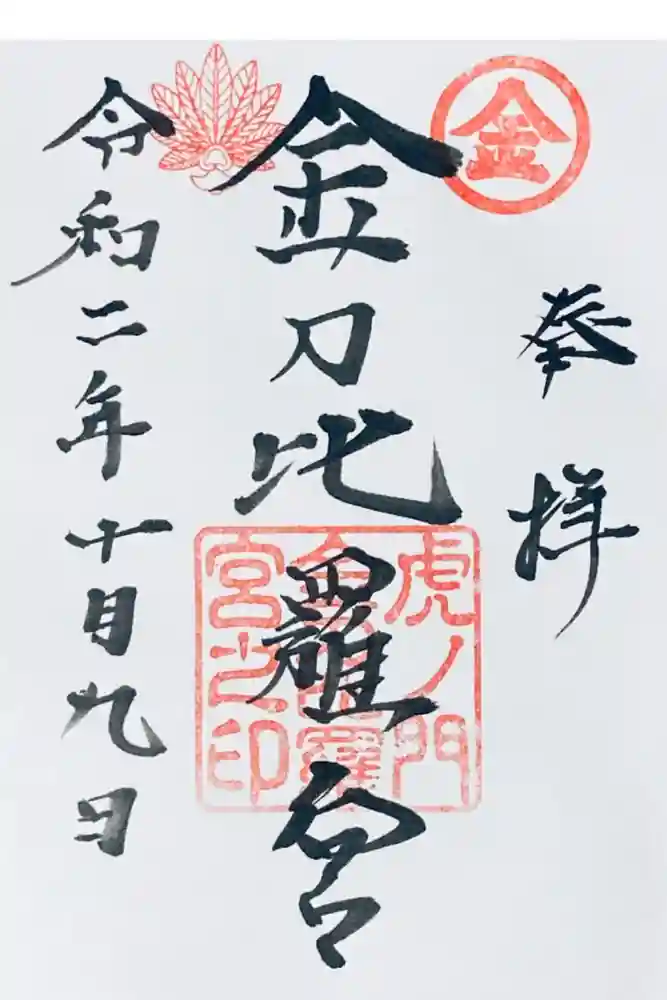 金
奉拝
金刀比羅宮
虎ノ門
金刀比羅
宮之印
令和二年十月九日